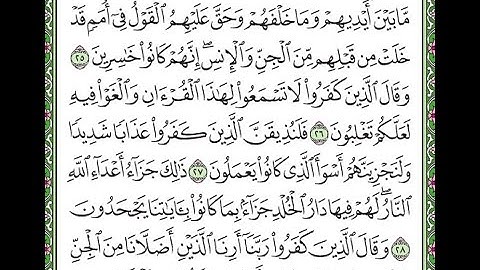 مَّا بَيْنَ أَيْدِيهِمْ وَمَا خَلْفَهُمْ وَحَقَّ عَلَيْهِمُ ٱلْقَوْلُ فِىٓ أُمَمٍ قَدْ
خَلَتْ مِن قَبْلِهِم مِّنَ ٱلْجِنِّ وَٱلْإِنسِ ۖ إِنَّهُمْ كَانُوا۟ خَـٰسِرِينَ ٢٥
وَقَالَ ٱلَّذِينَ كَفَرُوا۟ لَا تَسْمَعُوا۟ لِهَـٰذَا ٱلْقُرْءَانِ وَٱلْغَوْا۟ فِيهِ
لَعَلَّكُمْ تَغْلِبُونَ ٢٦ فَلَنُذِيقَنَّ ٱلَّذِينَ كَفَرُوا۟ عَذَابًا شَدِيدًا
وَلَنَجْزِيَنَّهُمْ أَسْوَأَ ٱلَّذِى كَانُوا۟ يَعْمَلُونَ ٢٧ ذَٰلِكَ جَزَآءُ أَعْدَآءِ ٱللَّهِ
ٱلنَّارُ ۖ لَهُمْ فِيهَا دَارُ ٱلْخُلْدِ ۖ جَزَآءًۢ بِمَا كَانُوا۟ بِـَٔايَـٰتِنَا يَجْحَدُونَ
٢٨ وَقَالَ ٱلَّذِينَ كَفَرُوا۟ رَبَّنَآ أَرِنَا ٱلَّذَيْنِ أَضَلَّانَا مِنَ ٱلْجِنِّ